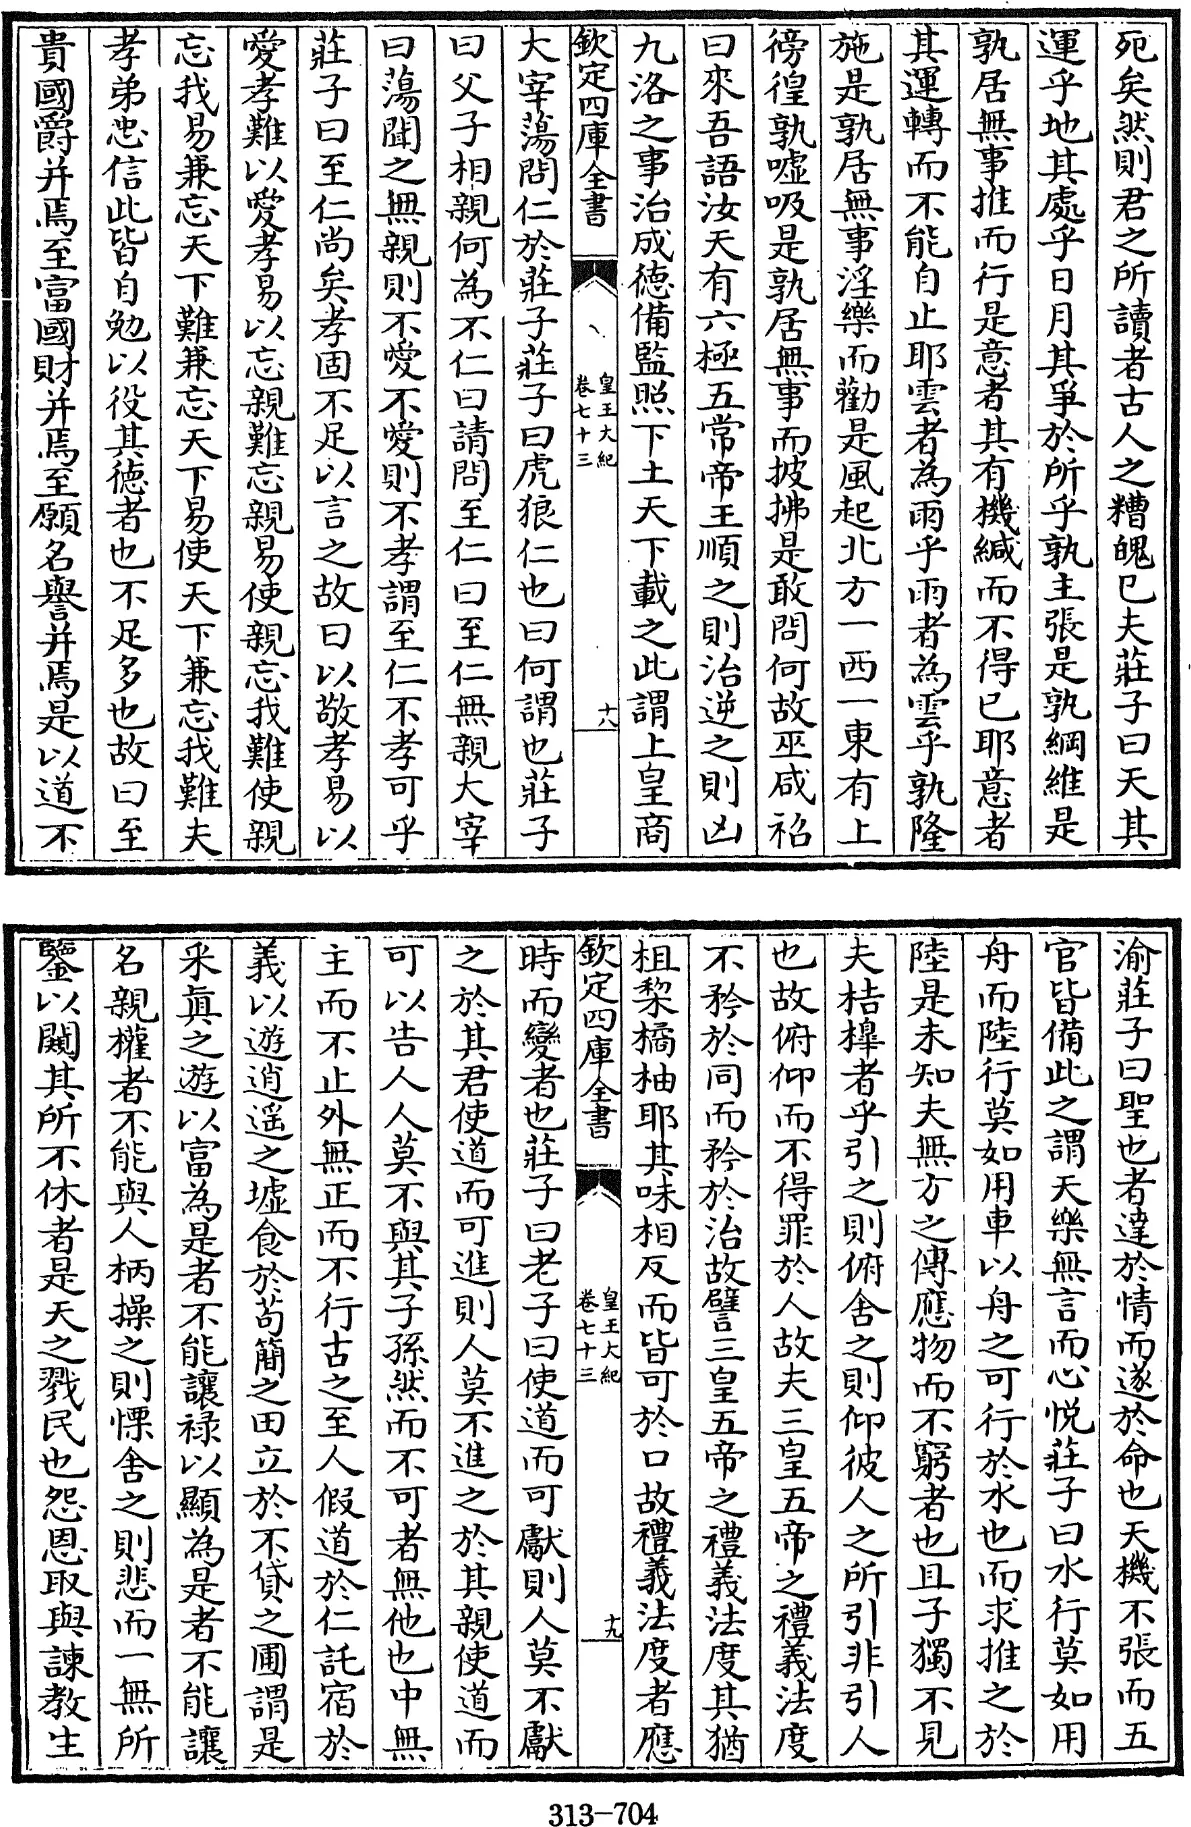 死矣然則君之所讀者古人之糟魄已夫莊子曰天其
運乎地其處乎日月其爭於所乎孰主張是孰綱維是
孰居無事推而行是意者其有機緘而不得已耶意者
其運轉而不能自止耶雲者為雨乎雨者為雲乎孰隆
施是孰居無事淫樂而勸是風起北方一西一東有上
徬徨孰噓吸是孰居無事而披拂是敢問何故巫咸祒
曰來吾語汝天有六極五常帝王順之則治逆之則凶
九洛之事治成德備監照下土天下載之此謂上皇商
欽定四庫全書
皇王大紀
卷七十三
十八
大宰蕩問仁於莊子莊子曰虎狼仁也曰何謂也莊子
曰父子相親何為不仁曰請問至仁曰至仁無親大宰
曰蕩聞之無親則不愛不愛則不孝謂至仁不孝可乎
莊子曰至仁尚矣孝固不足以言之故曰以敬孝易以
愛孝難以愛孝易以忘親難忘親易使親忘我難使親
忘我易兼忘天下難兼忘天下易使天下兼忘我難夫
孝弟忠信此皆自勉以役其德者也不足多也故曰至
貴國爵并焉至富國財并焉至願名譽并焉是以道不
渝莊子曰聖也者達於情而遂於命也天機不張而五
官皆備此之謂天樂無言而心悅莊子曰水行莫如用
舟而陸行莫如用車以舟之可行於水也而求推之於
陸是未知夫無方之傳應物而不窮者也且子獨不見
夫桔橰者乎引之則俯舍之則仰彼人之所引非引人
也故俯仰而不得罪於人故夫三皇五帝之禮義法度
不矜於同而矜於治故譬三皇五帝之禮義法度其猶
柤棃橘柚耶其味相反而皆可於口故禮義法度者應
欽定四庫全書
皇王大紀
卷七十三
十九
時而變者也莊子曰老子曰使道而可獻則人莫不獻
之於其君使道而可進則人莫不進之於其親使道而
可以告人人莫不與其子孫然而不可者無他也中無
主而不止外無正而不行古之至人假道於仁託宿於
義以遊逍遥之墟食於苟簡之田立於不貸之圃謂是
釆真之遊以富為是者不能讓祿以顯為是者不能讓
名親權者不能與人柄操之則慄舍之則悲而一無所
鑒以闚其所不休者是天之戮民也怨恩取與諫教生
313-704